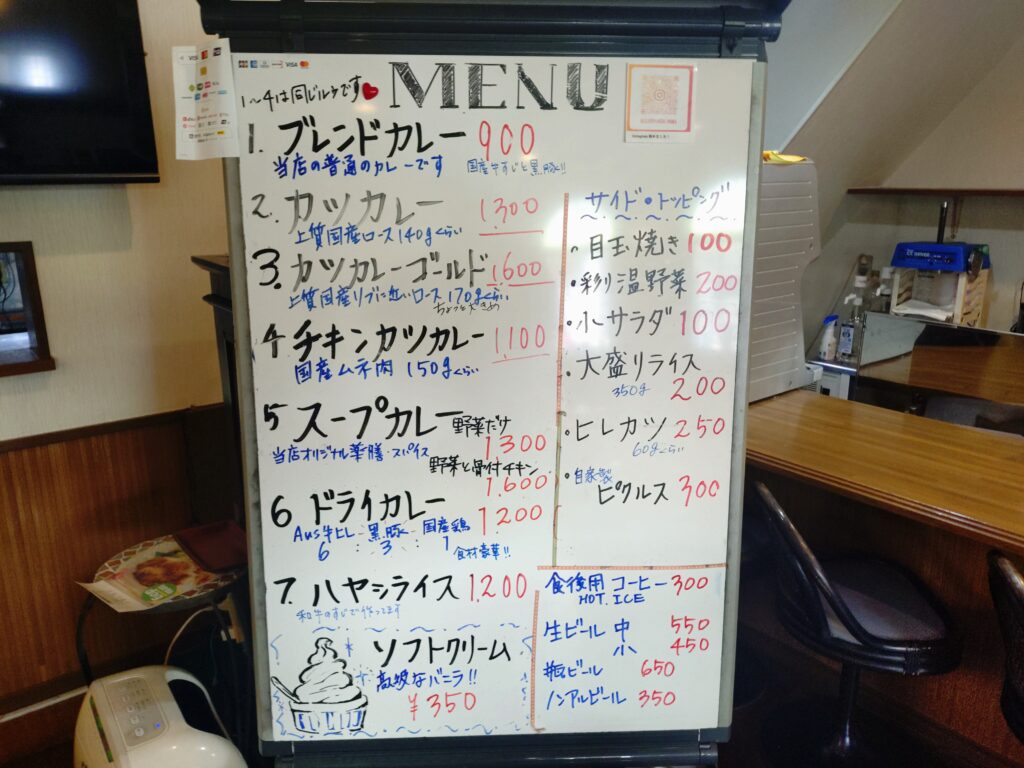 MENU
1〜4は同じルウです
1. ブレンドカレー 900
当店の普通のカレーです 国産牛すじと黒豚!!
2. カツカレー 1,300
上質国産ロース140gくらい
3. カツカレーゴールド 1,600
上質国産リブに近いロース170gくらい
ちょっと大きめ
4 チキンカツカレー 1,100
国産ムネ肉 150gくらい
5 スープカレー 野菜だけ 1300
当店オリジナル薬膳・スパイス
野菜と骨付チキン 1,600
6 ドライカレー 1200
Aus牛ヒレ 黒豚 国産鶏
6 : 3 : 1
食材豪華!!
7. ハヤシライス 1,200
和牛のすじで作ってます
ソフトクリーム
高級なバニラ!!
¥350
サイド・トッピング
・目玉焼き 100
・彩り温野菜 200
・小サラダ 100
・大盛りライス
350g 200
・ヒレカツ 250
60gくらい
・自家製
ピクルス 300
食後用 コーヒー 300
HOT. ICE
生ビール 中 550
小 450
瓶ビール 650
ノンアルビール 350
VISA